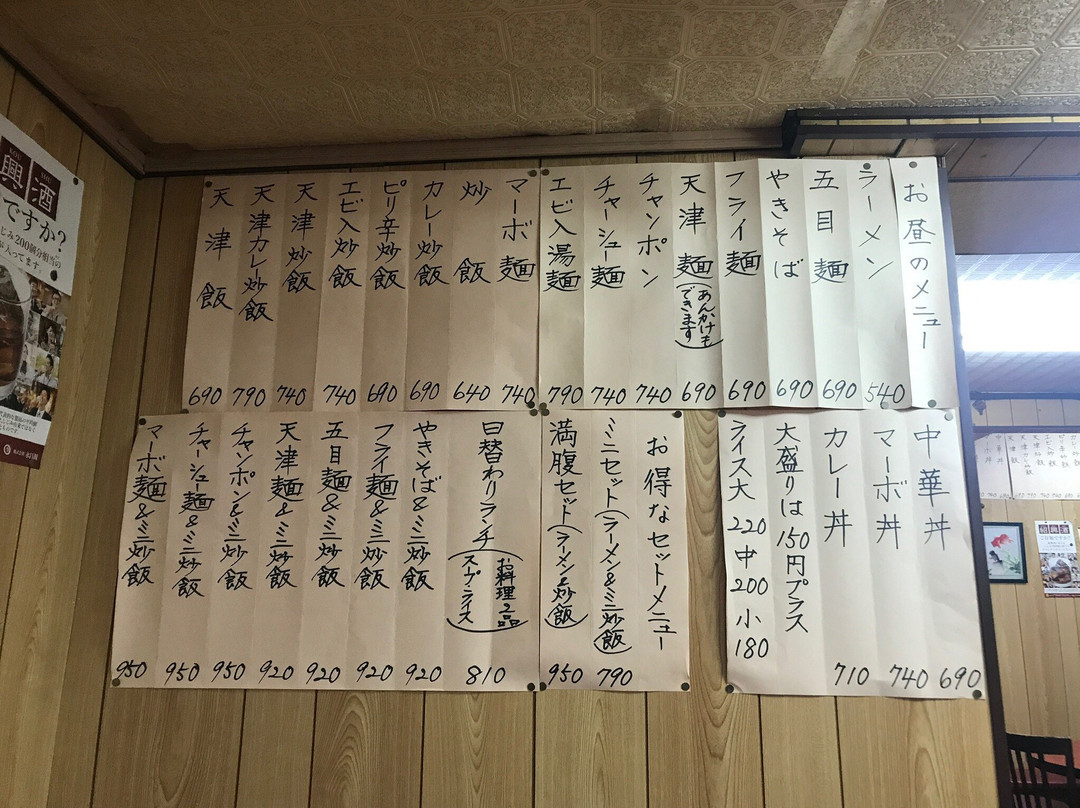 お昼のメニュー
ラーメン 540
五目麺 690
やきそば 690
フライ麺 690
天津麺(あんかけもできます) 690
チャンポン 740
チャーシュー麺 740
エビ入湯麺 790
マーボ麺 740
炒飯 640
カレー炒飯 690
ピリ辛炒飯 690
エビ入炒飯 740
天津炒飯 740
天津カレー炒飯 790
天津飯 690
中華丼 690
マーボ丼 740
カレー丼 710
大盛りは150円プラス
ライス大 220 中 200 小 180
お得なセットメニュー
ミニセット(ラーメン&ミニ炒飯) 790
満腹セット(ラーメン&炒飯) 950
日替わりランチ(お料理2品 スープ・ライス) 810
やきそば&ミニ炒飯 920
フライ麺&ミニ炒飯 920
五目麺&ミニ炒飯 920
天津麺&ミニ炒飯 920
チャンポン&ミニ炒飯 950
チャーシュー麺&ミニ炒飯 950
マーボ麺&ミニ炒飯 950
興酒
ですか?
じみ200個分相当の
入ってます